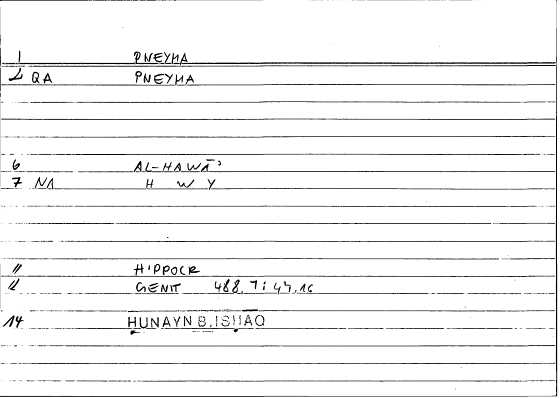 1 PNEYMA
2 QA PNEYMA
6 AL-HAWĀʾ
7 NA H W Y
11 HIPPOCR
12 GENIT 488,7 : 47,16
14 ḤUNAYN B. ISḤĀQ